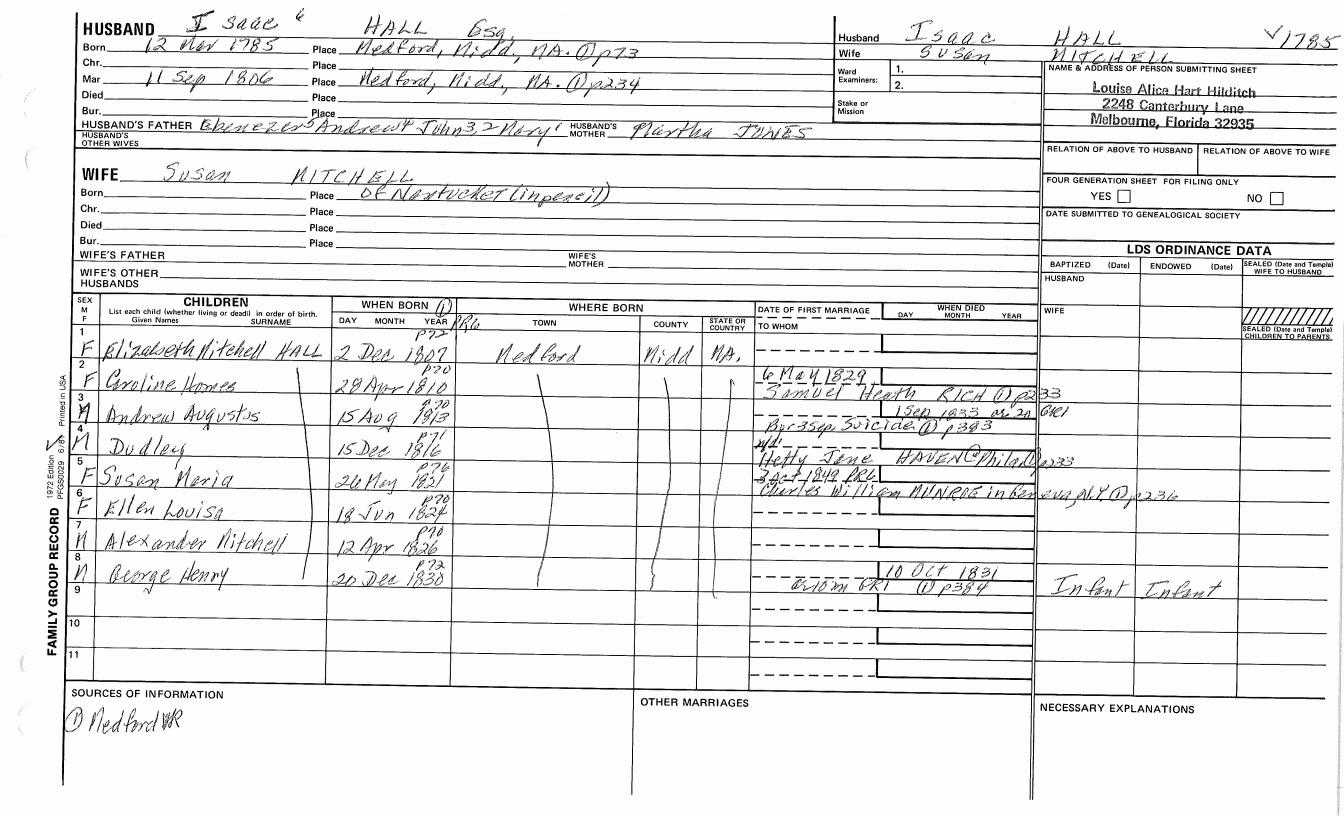 HUSBAND Isaac 6 HALL Esq.
Born 12 Nov 1785 Place Medford, Midd, MA. ① p73
Chr. Place
Mar 11 Sep 1806 Place Medford, Midd, MA. ① p234
Died Place
Bur. Place
HUSBAND'S FATHER Ebenezer5 Andrew4 John3,2 Nary1 HUSBAND'S MOTHER Martha JONES
HUSBAND'S OTHER WIVES
Husband Isaac HALL √1785
Wife Susan MITCHELL
Ward Examiners: 1.
2.
Stake or Mission
NAME & ADDRESS OF PERSON SUBMITTING SHEET
Louise Alice Hart Hilditch
2248 Canterbury Lane
Melbourne, Florida 32935
RELATION OF ABOVE TO HUSBAND RELATION OF ABOVE TO WIFE
FOUR GENERATION SHEET FOR FILING ONLY
YES NO
DATE SUBMITTED TO GENEALOGICAL SOCIETY
WIFE Susan MITCHELL
Born Place Of Nantucket (in pencil)
Chr. Place
Died Place
Bur. Place
WIFE'S FATHER WIFE'S MOTHER
WIFE'S OTHER HUSBANDS
LDS ORDINANCE DATA
BAPTIZED (Date) ENDOWED (Date) SEALED (Date and Temple) WIFE TO HUSBAND
HUSBAND
WIFE
SEALED (Date and Temple) CHILDREN TO PARENTS
SEX M F
CHILDREN
List each child (whether living or dead) in order of birth.
Given Names SURNAME
WHEN BORN ①
DAY MONTH YEAR
WHERE BORN
TOWN COUNTY STATE OR COUNTRY
DATE OF FIRST MARRIAGE
TO WHOM
WHEN DIED
DAY MONTH YEAR
1 F Elizabeth Mitchell HALL 2 Dec 1807 p72 Medford Midd MA.
2 F Caroline Homes 28 Apr 1810 p70 6 May 1829
Samuel Heath RICH ① p233
3 M Andrew Augustus 15 Aug 1813 p70 1 Sep 1833 or 20 GR1
Bur 3 Sep Suicide ① p383
4 M Dudley 15 Dec 1816 p71
Hetty Jane HAVEN @ Philad p233
5 F Susan Maria 26 May 1821 p76 3 Oct 1849 PR6
Charles William MUNROE in Geneva, N.Y ① p236
6 F Ellen Louisa 18 Jun 1824 p70
7 M Alexander Mitchell 12 Apr 1826 p70
8 M George Henry 20 Dec 1830 p72 10 Oct 1831
a.10m GR1 ① p384 Infant Infant
9
10
11
SOURCES OF INFORMATION
① Medford VR
OTHER MARRIAGES
NECESSARY EXPLANATIONS
FAMILY GROUP RECORD 1972 Edition PFGS0029 6/81 Printed in USA